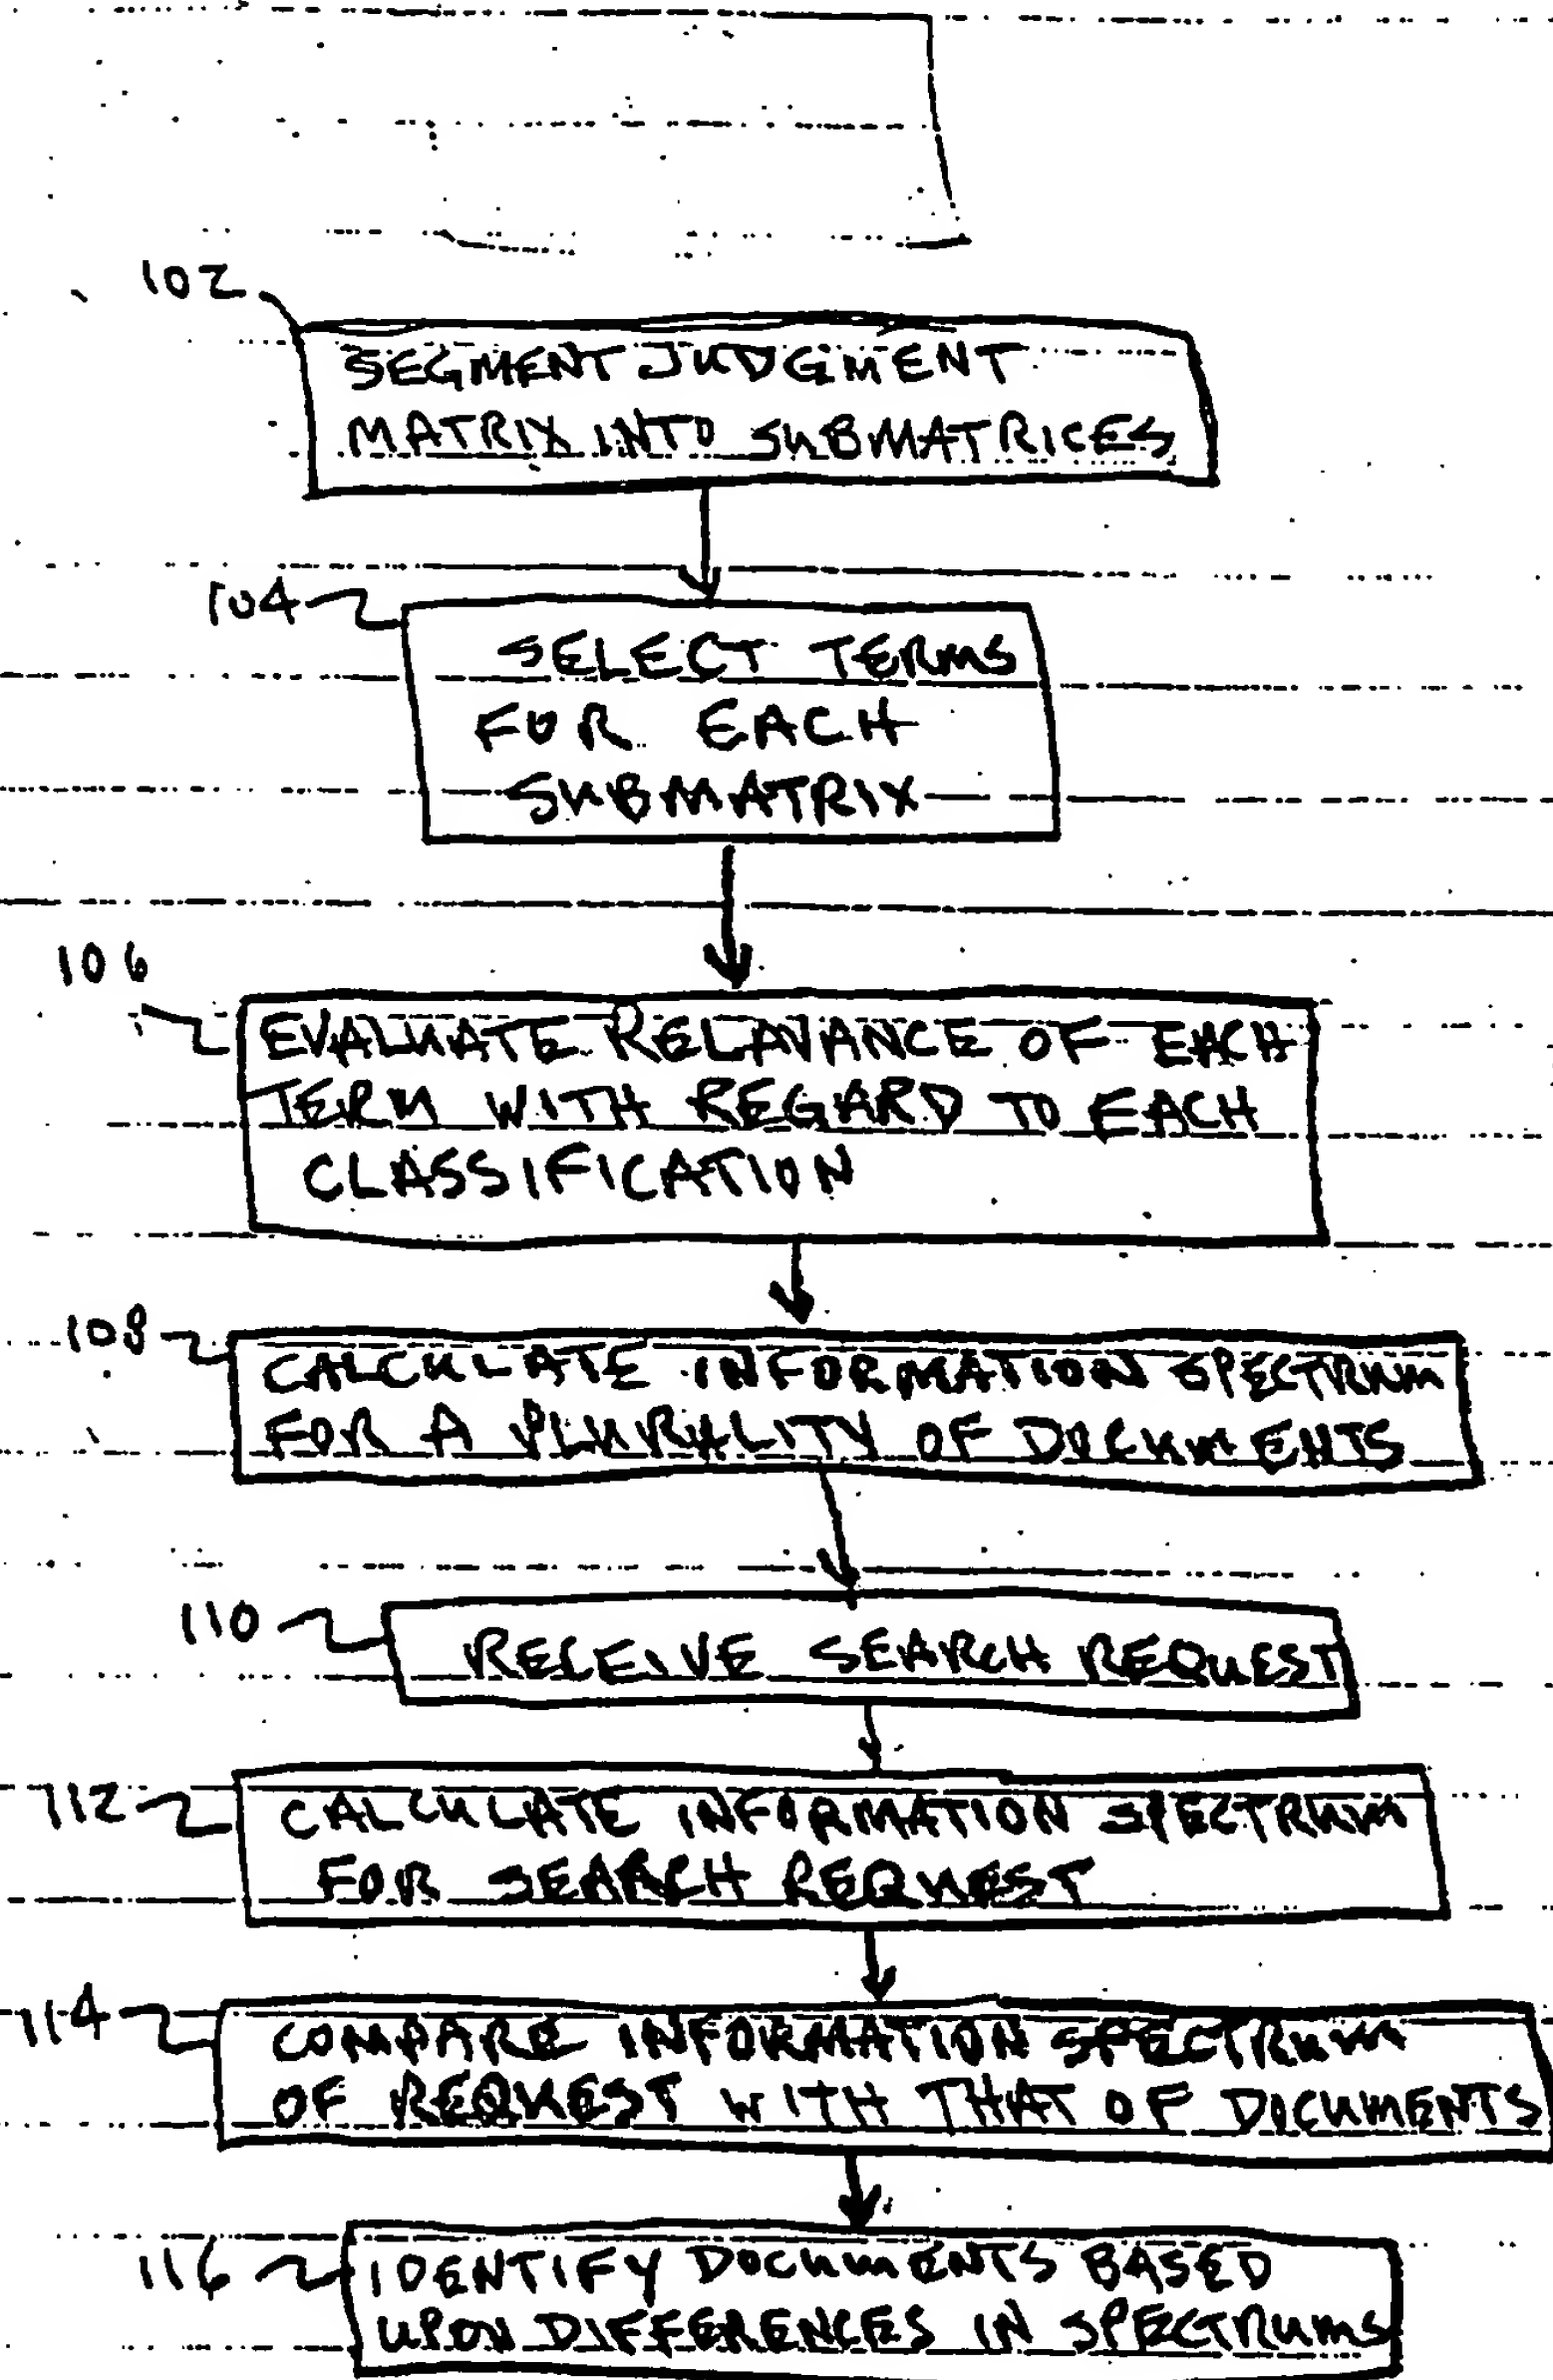 102
SEGMENT JUDGMENT
MATRIX INTO SUBMATRICES
104
SELECT TERMS
FOR EACH
SUBMATRIX
106
EVALUATE RELAVANCE OF EACH
TERM WITH REGARD TO EACH
CLASSIFICATION
108
CALCULATE INFORMATION SPECTRUM
FOR A PLURALITY OF DOCUMENTS
110
RECEIVE SEARCH REQUEST
112
CALCULATE INFORMATION SPECTRUM
FOR SEARCH REQUEST
114
COMPARE INFORMATION SPECTRUM
OF REQUEST WITH THAT OF DOCUMENTS
116
IDENTIFY DOCUMENTS BASED
UPON DIFFERENCES IN SPECTRUMS